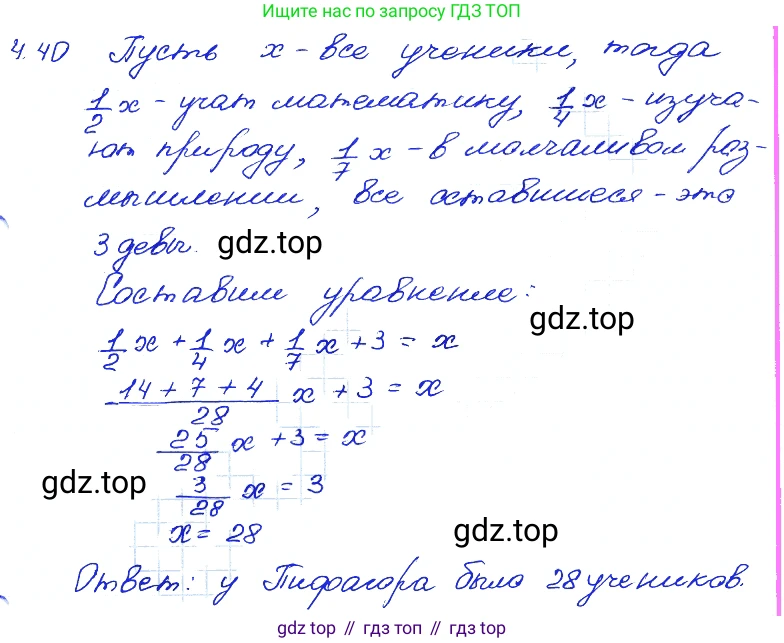 Ищите нас по запросу ГДЗ ТОП
4.40 Пусть x - все ученики, тогда
1/2 x - учат математику, 1/4 x - изуча-
ют природу, 1/7 x - в молчаливом раз-
мышлении, все оставшиеся - это
3 девы. gdz.top
Составим уравнение:
gdz.top
1/2 x + 1/4 x + 1/7 x + 3 = x
(14 + 7 + 4)/28 x + 3 = x
25/28 x + 3 = x
gdz.top 3/28 x = 3
x = 28 gdz.top
Ответ: у Пифагора было 28 учеников.
gdz top // гдз топ // gdz top